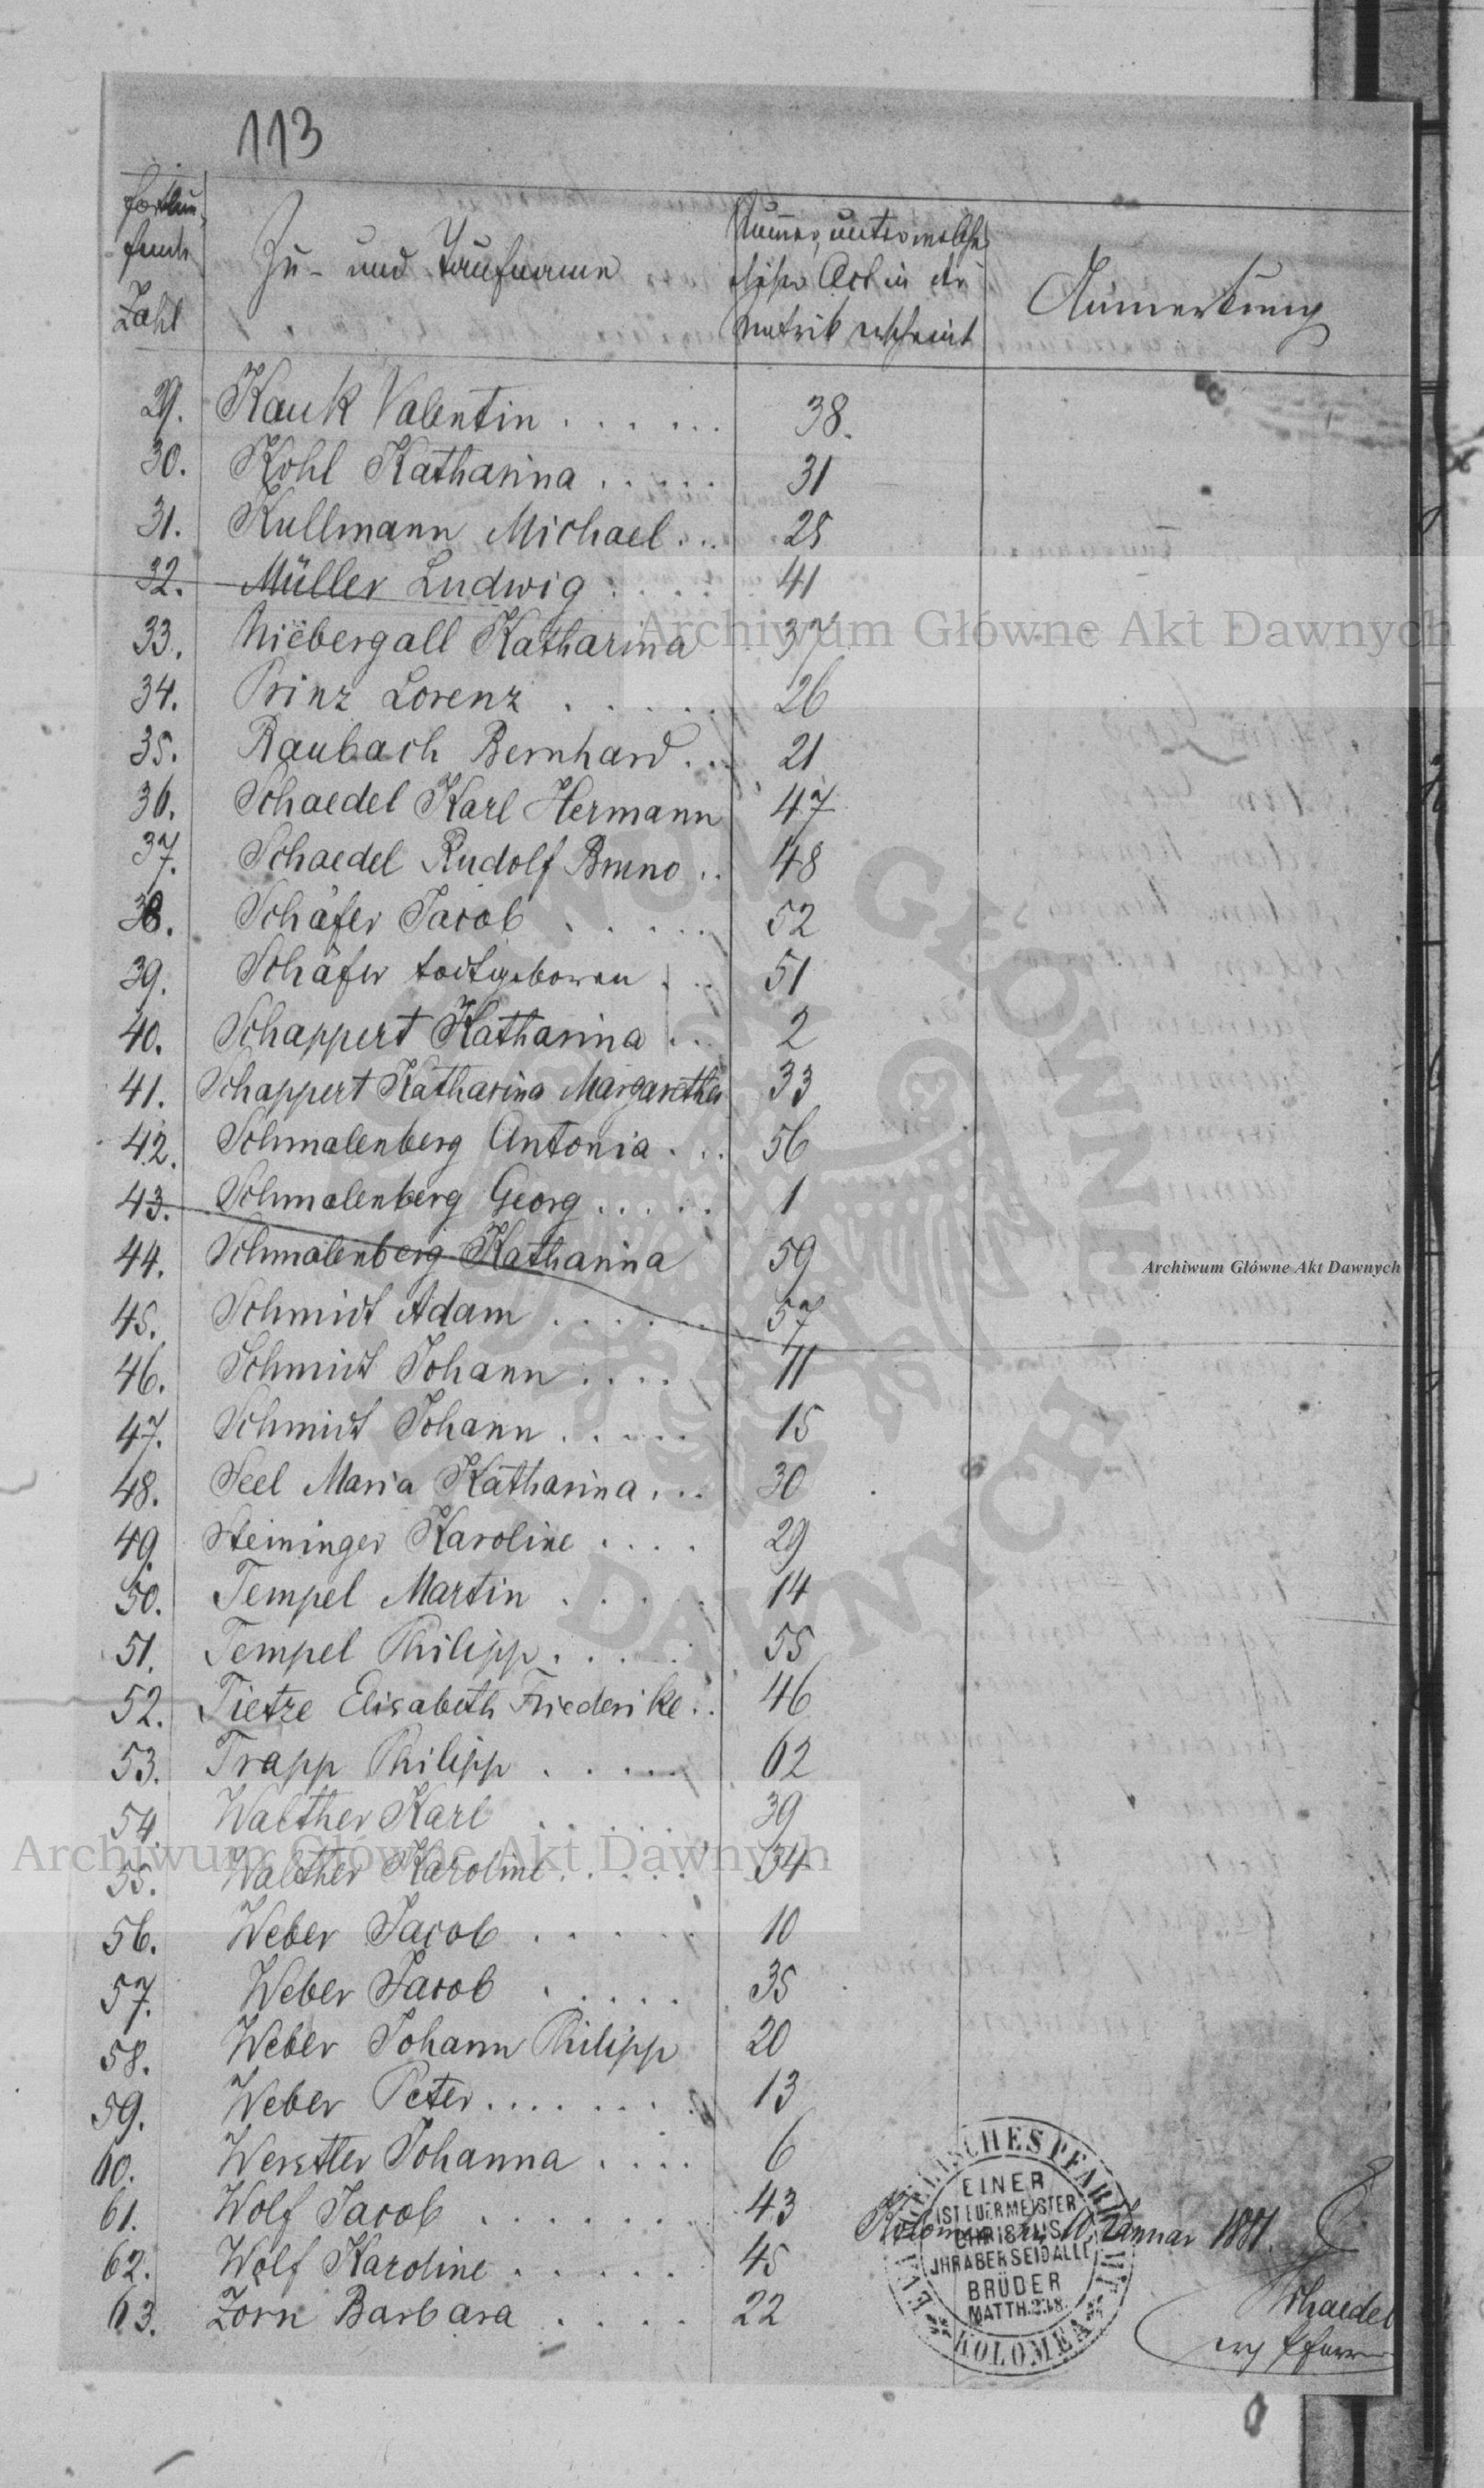 113
fortlau-
fende
Zahl
Zu- und Taufname
Nummer, unter welcher
dieser Act in der
Matrik erscheint
Anmerkung
29. Kauk Valentin . . . . . . 38.
30. Kohl Katharina . . . . . 31
31. Kullmann Michael . . . 25
32. Müller Ludwig . . . . . 41
33. Niëbergall Katharina 37
34. Prinz Lorenz . . . . . 26
35. Raubach Bernhard . . . 21
36. Schaedel Karl Hermann 47
37. Schaedel Rudolf Bruno . . 48
38. Schäfer Jacob . . . . . 52
39. Schäfer todtgeboren . . . 51
40. Schappert Katharina . . . 2
41. Schappert Katharina Margaretha 33
42. Schmalenberg Antonia . . . 56
43. Schmalenberg Georg . . . . . 1
44. Schmalenberg Katharina 59
45. Schmidt Adam . . . . . . 57
46. Schmidt Johann . . . . 11
47. Schmidt Johann . . . . . 15
48. Seel Maria Katharina . . . 30
49. Steininger Karoline . . . . 29
50. Tempel Martin . . . . . 14
51. Tempel Philipp . . . . . 55
52. Tietze Elisabeth Friederike . . 46
53. Trapp Philipp . . . . . 62
54. Walther Karl . . . . . 39
55. Walther Karoline . . . . . 34
56. Weber Jacob . . . . . 10
57. Weber Jacob . . . . . 35
58. Weber Johann Philipp 20
59. Weber Peter . . . . . . . 13
60. Werstler Johanna . . . . 6
61. Wolf Jacob . . . . . . . 43
62. Wolf Karoline . . . . . . 45
63. Zorn Barbara . . . . 22
Kolomea, den 10. Januar 1881.
Schaedel
ev. Pfarrer
EVANGELISCHES PFARRAMT
KOLOMEA
EINER
IST EUER MEISTER
CHRISTUS
IHR ABER SEID ALLE
BRÜDER
MATTH. 23.8.
Archiwum Główne Akt Dawnych
Archiwum Główne Akt Dawnych
Archiwum Główne Akt Dawnych
ARCHIWUM GŁÓWNE AKT DAWNYCH